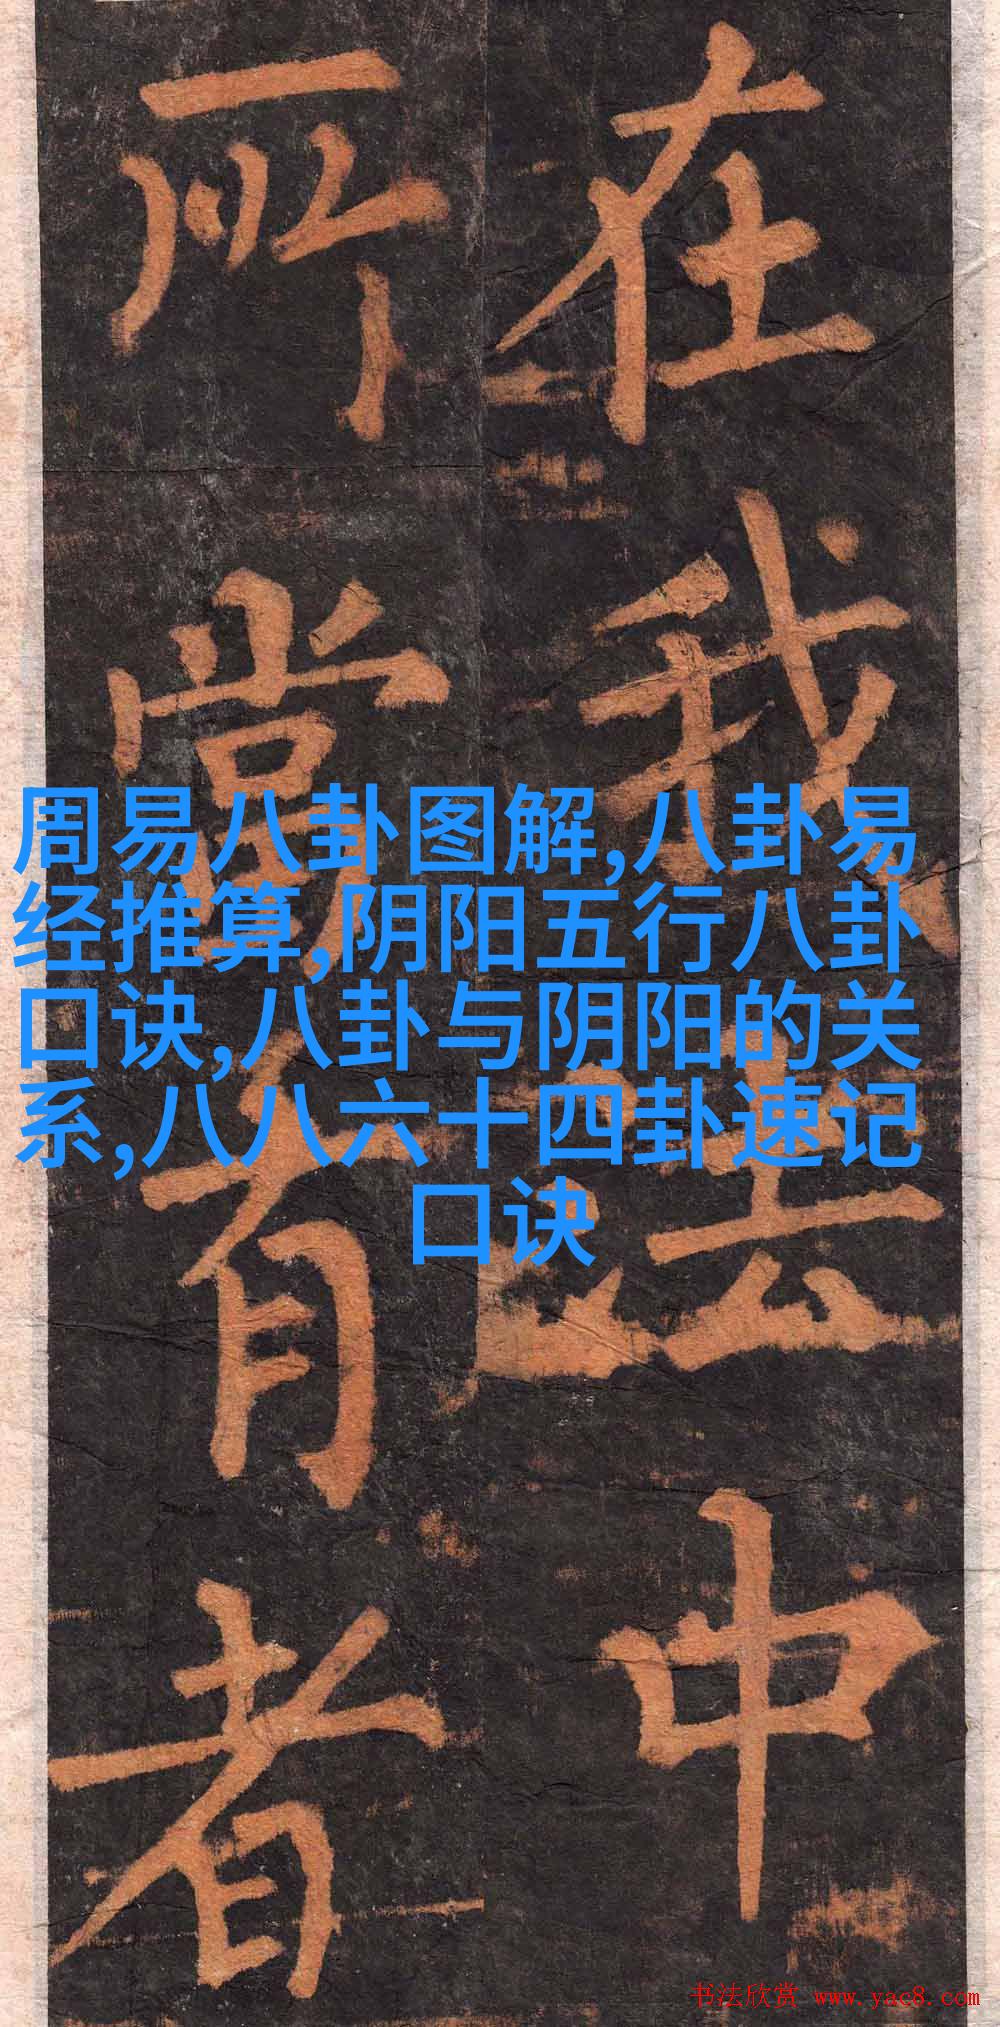 在我法中
所有者
周易八卦图解,八卦易
经推算,阴阳五行八卦
口诀,八卦与阴阳的关
系,八八六十四卦速记
口诀
书法欣赏 www.yac8.com